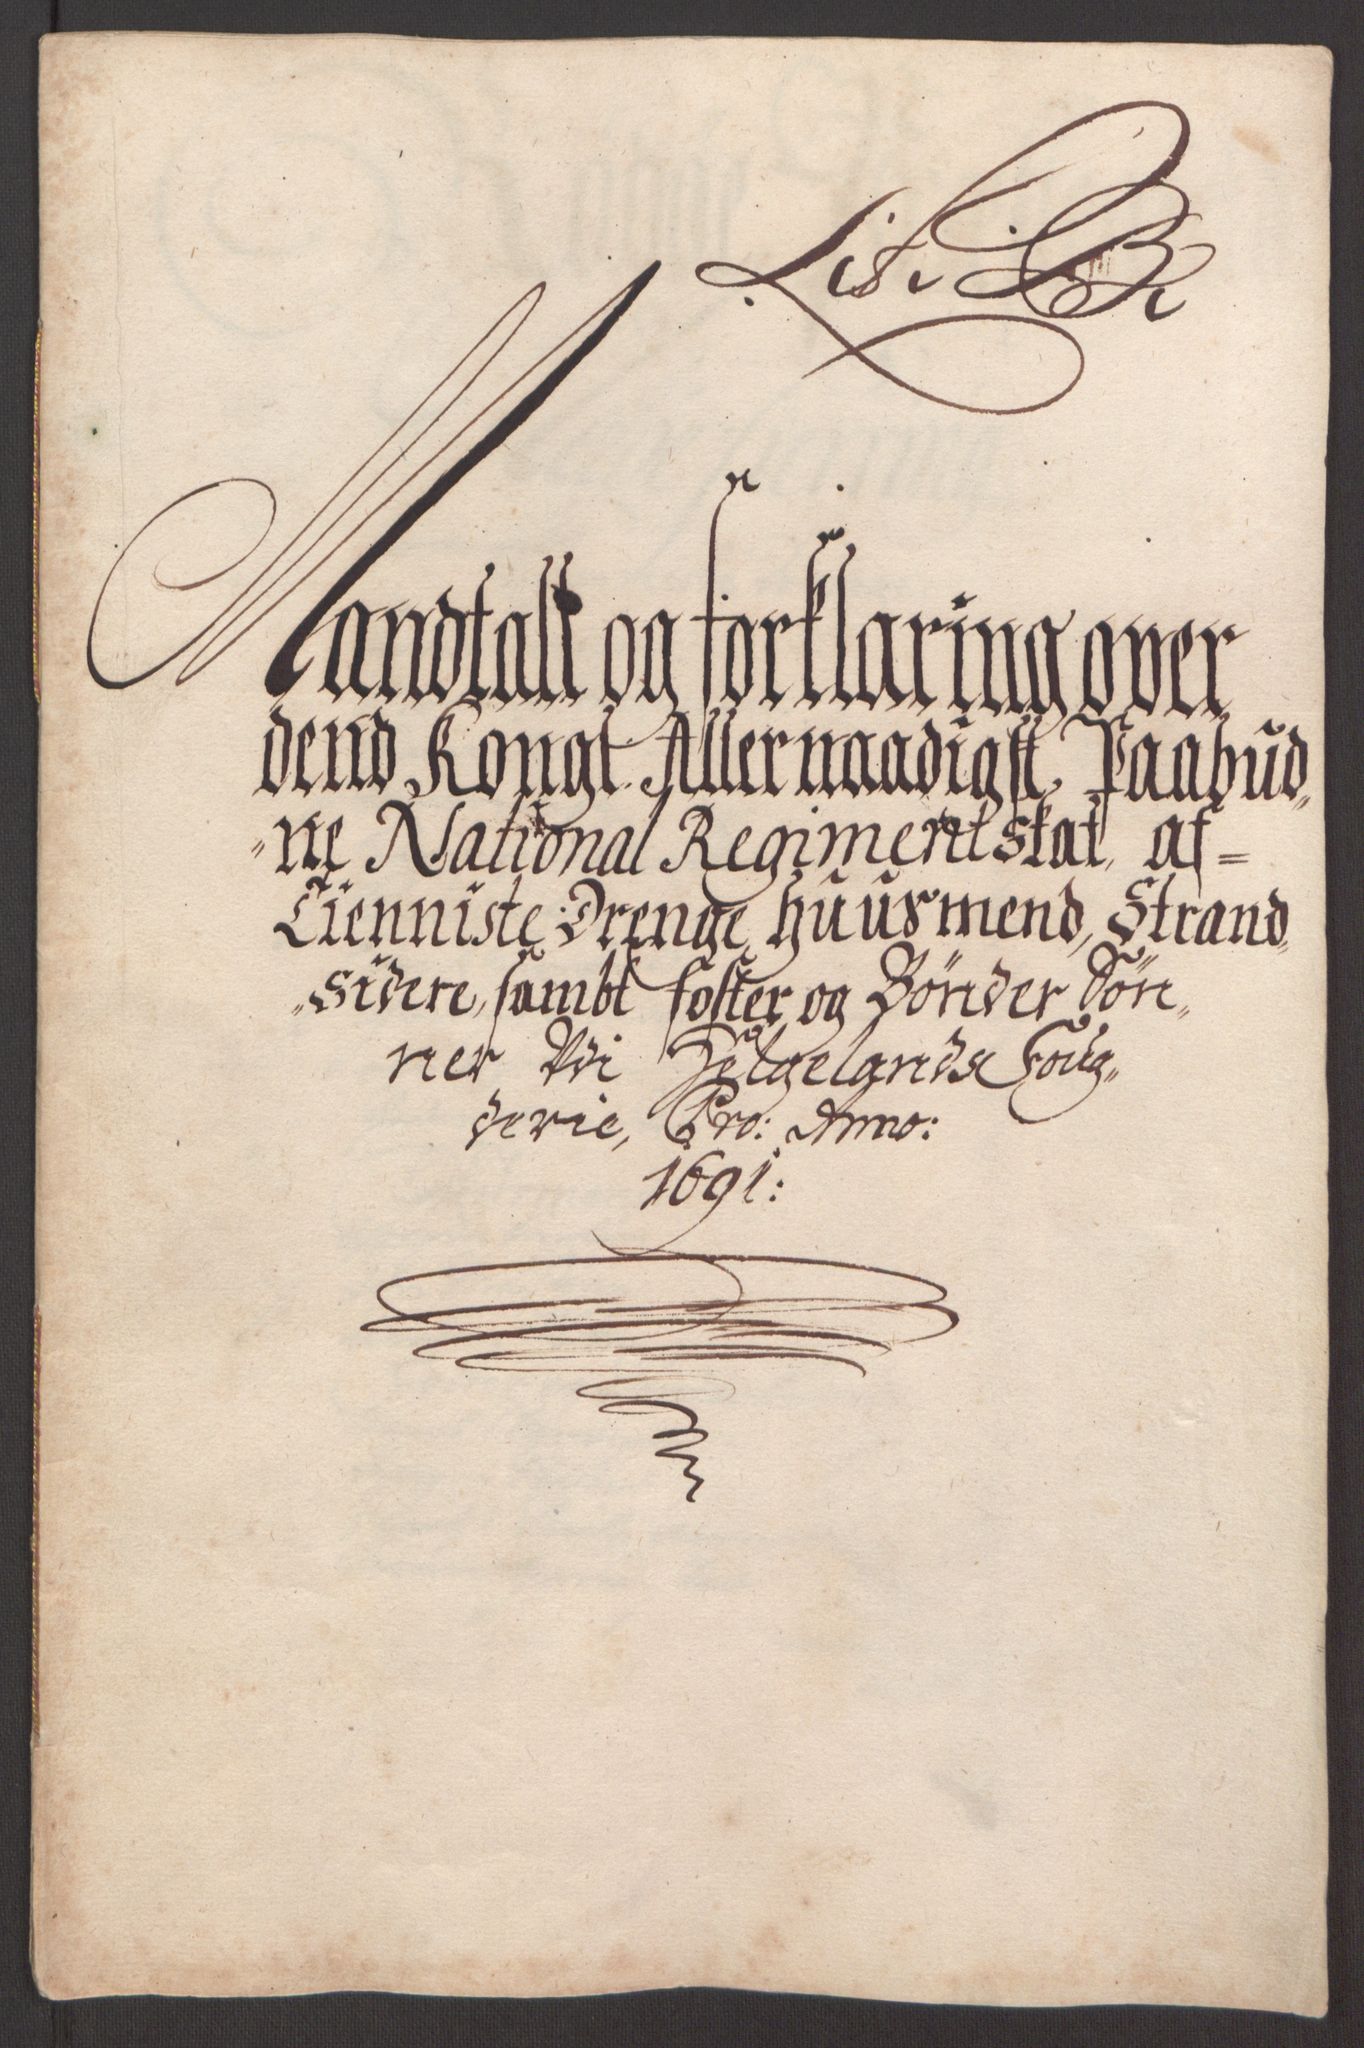 Lit. B.
Mandtall og forklaring over
dend Kongl. Allernaadigst Paabud„
„ne National Regimentskat, af=
Tienniste Drenge, Huusmend, Strand„
„sidere, sambt foster og Bönder Sön„
ner Udi Helgelands Foug„
derie, Pro: Anno:
1691: